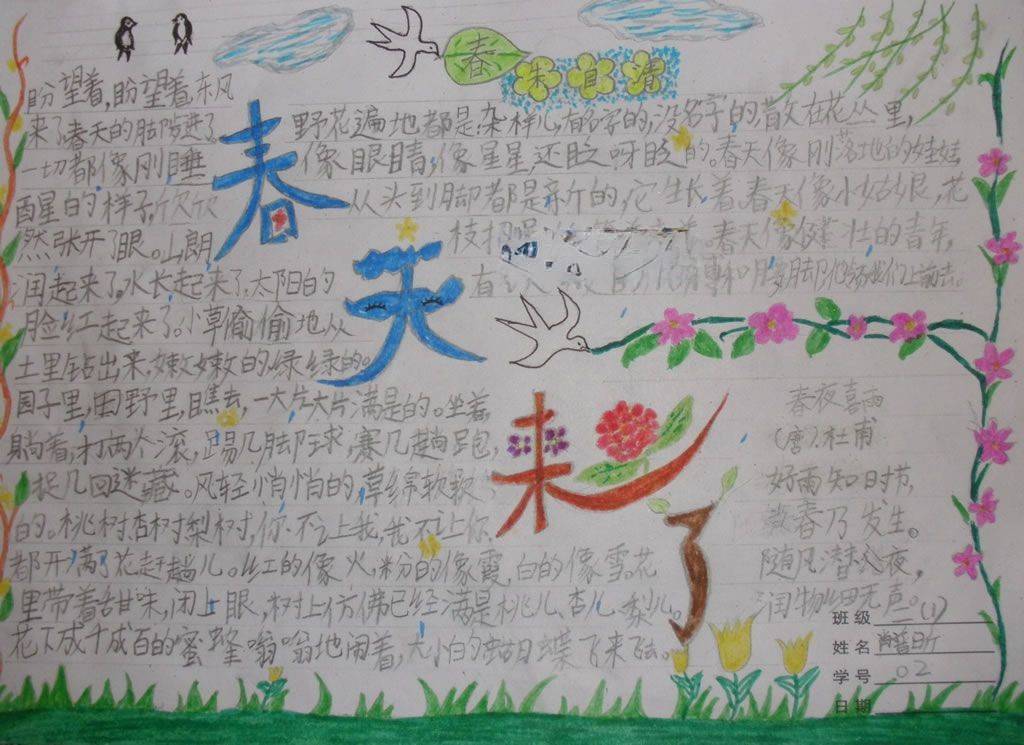 春
朱自清
盼望着,盼望着,东风
来了,春天的脚步近了。
一切都像刚睡
醒的样子,欣欣
然张开了眼。山朗
润起来了,水长起来了,太阳的
脸红起来了。小草偷偷地从
土里钻出来,嫩嫩的,绿绿的。
园子里,田野里,瞧去,一大片大片,满是的。坐着,
躺着,打两个滚,踢几脚球,赛几趟跑,
捉几回迷藏。风轻悄悄的,草绵软软
的。桃树,杏树,梨树,你不让我,我不让你,
都开满了花赶趟儿。红的像火,粉的像霞,白的像雪。花
里带着甜味,闭上眼,树上仿佛已经满是桃儿,杏儿,梨儿。
花下成千成百的蜜蜂嗡嗡地闹着,大小的蝴蝶飞来飞去。
野花遍地都是,杂样儿,有名字的,没名字的,散文在花丛里,
像眼睛,像星星,还眨呀眨的。春天像刚落地的娃娃,
从头到脚都是新的,它生长着。春天像小姑娘,花
枝招
。春天像健壮的青年,
有
脚,他领我们上前去。
春天来了
春夜喜雨
(唐)杜甫
好雨知时节,
春乃发生。
随风潜入夜,
润物细无声。
班级 二(1)
姓名
学号 02
日期